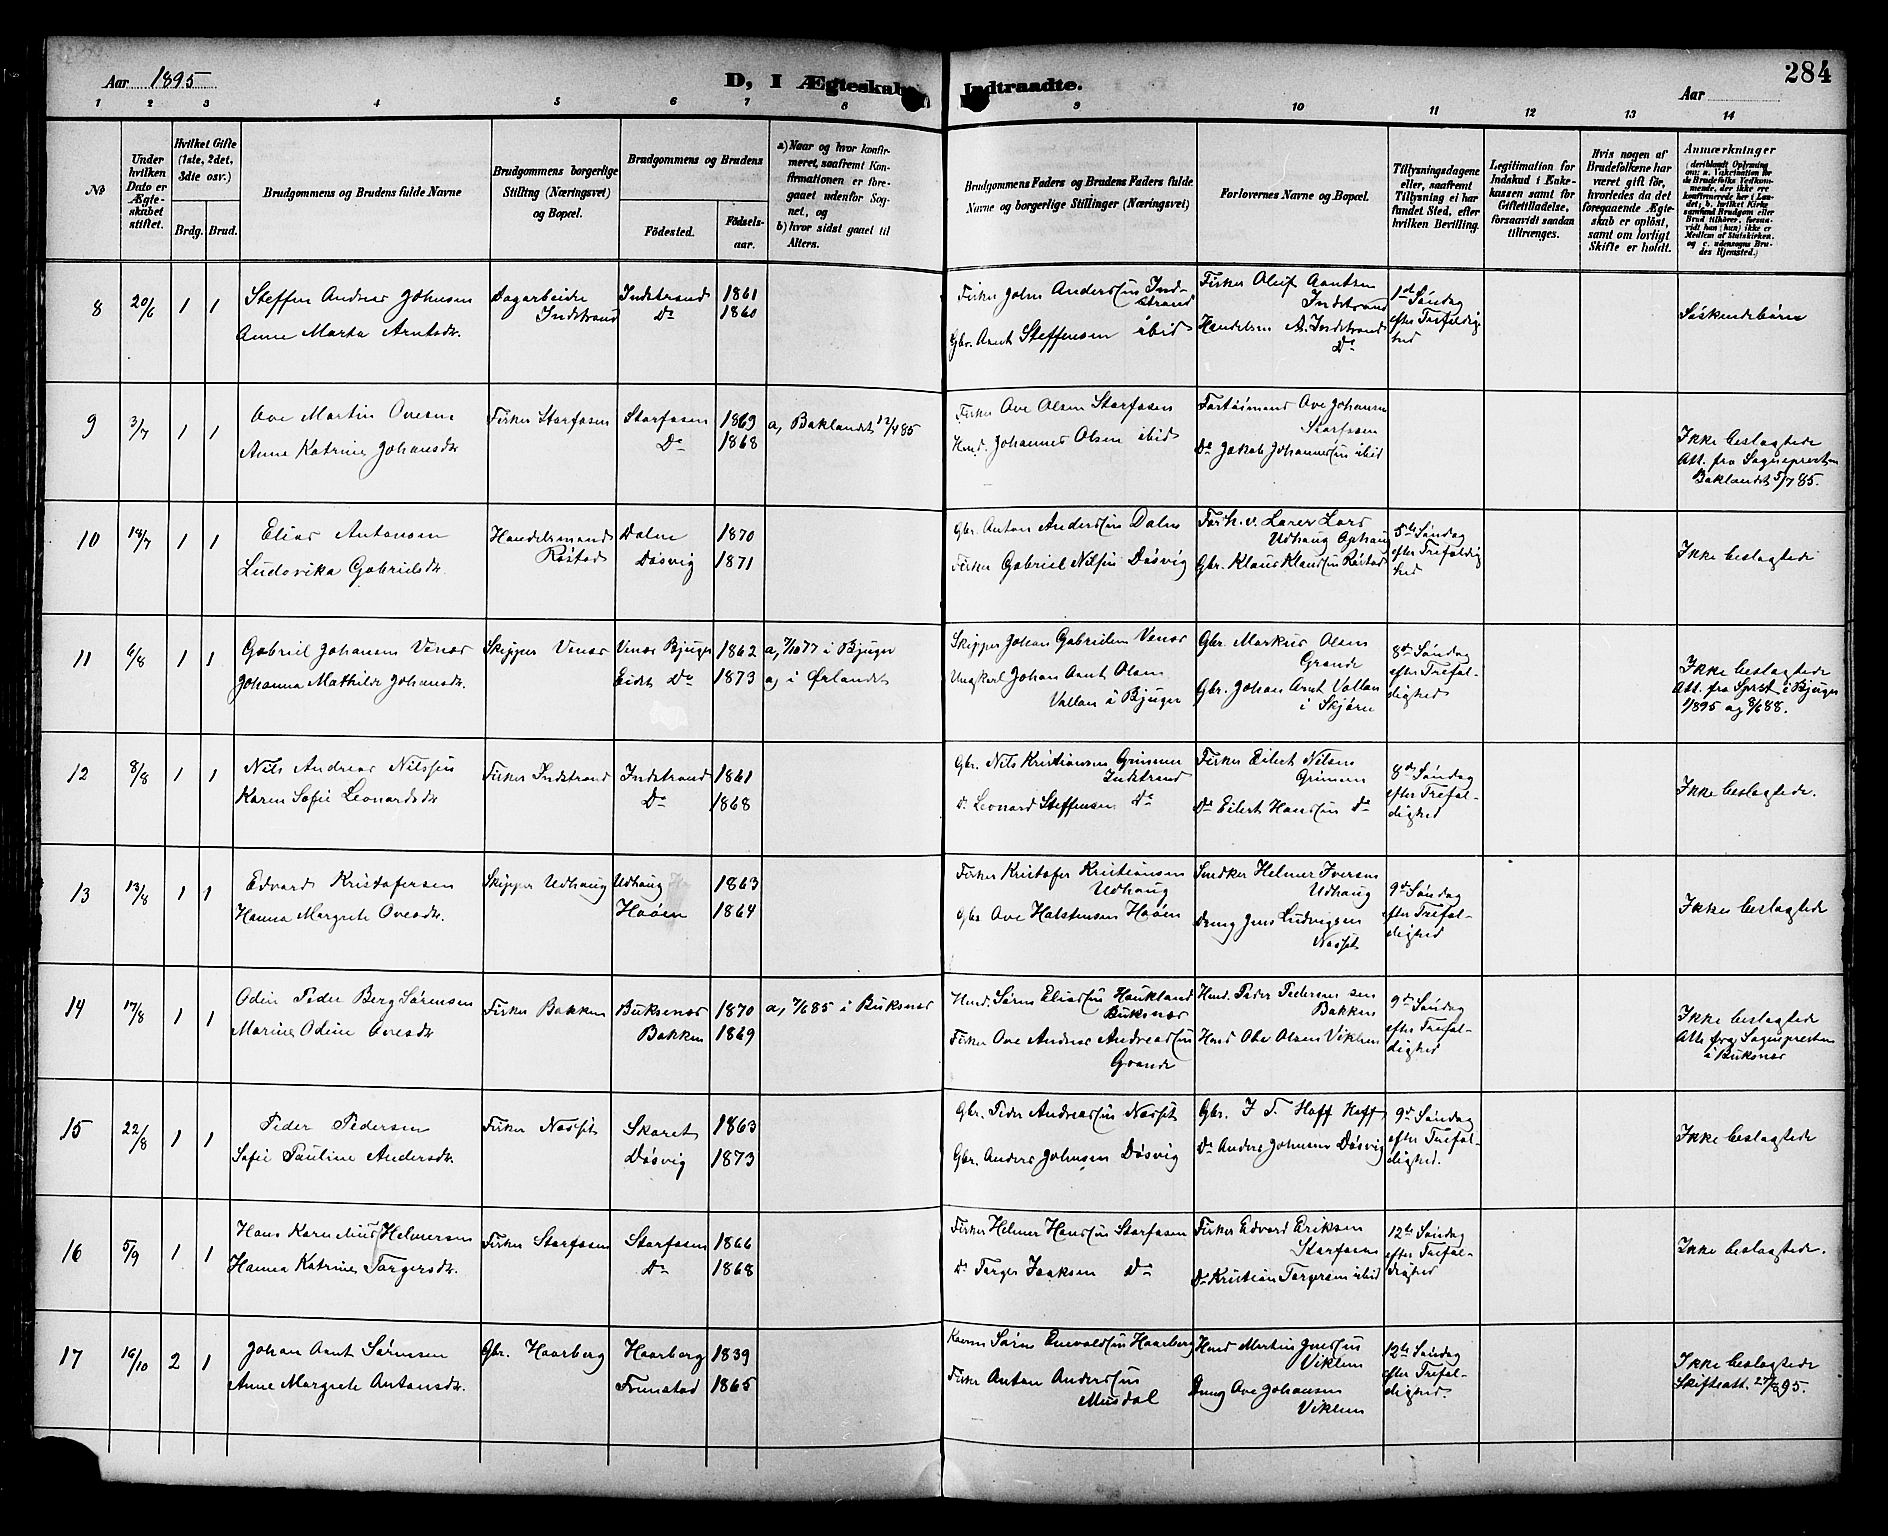 Aar 1895
D, I Ægteskab Indtraadte.
Aar
284
1 2 3 4 5 6 7 8 9 10 11 12 13 14
No
Under hvilken Dato er Ægteskabet stiftet.
Hvilket Gifte (1ste, 2det, 3die osv.)
Brdg. Brud.
Brudgommens og Brudens fulde Navne
Brudgommens borgerlige Stilling (Næringsvei) og Bopæl.
Brudgommens og Brudens
Fødested.
Fødselsaar.
a) Naar og hvor konfirmeret, saafremt Konfirmationen er foregaaet udenfor Sognet, og
b) hvor sidst gaaet til Alters.
Brudgommens Faders og Brudens Faders fulde Navne og borgerlige Stillinger (Næringsvei)
Forlovernes Navne og Bopæl.
Tillysningsdagene eller, saafremt Tillysning ei har fundet Sted, efter hvilken Bevilling.
Legitimation for Indskud i Enkekassen samt for Giftetilladelse, forsaavidt saadan tiltrænges.
Hvis nogen af Brudefolkene har været gift før, hvorledes da det foregaaende Ægteskab er opløst, samt om lovligt Skifte er holdt.
Anmærkninger
(deriblandt Oplysning om: a. Vaksination for de Brudefolks Vedkommende, der ikke ere konfirmerede her i Landet; b. hvilket Kirkesamfund Brudgom eller Brud tilhører, forsaavidt han (hun) ikke er Medlem af Statskirken, og c. udensogns Brudes Hjemsted.)
8 20/6 1 1 Steffen Andreas Johnsen Dagarbeider Indstrand Indstrand 1861 Fisker John Andersen Indstrand Fisker Oluf Arntsen Indstrand 1ste Søndag efter Trefoldighed Søskendebørn
Anne Marta Arntsdr. Do 1860 Gbr. Arnt Steffensen ibid Handelsm A. Indstrand Do
9 3/7 1 1 Ove Martin Ovesen Fisker Storfosen Storfosen 1869 a, Baklandet 12/4 85 Fisker Ove Olsen Storfosen Ove Johansen Storfosen Ikke beslægtede
Anne Katrine Johansdr. Do 1868 Johannes Olsen ibid Do Jakob Johannesen ibid Att. fra Sognepresten Baklandet 5/7 85.
10 18/7 1 1 Elias Antonsen Handelsmand Røstad Dalen 1870 Gbr. Anton Andersen Dalen Lars Udhaug Ophaug 5te Søndag efter Trefoldighed Ikke beslægtede
Ludovika Gabrielsdr. Døsvig 1871 Fisker Gabriel Nilsen Døsvig Gbr. Klaus Klausen Røstad
11 6/8 1 1 Gabriel Johansen Venæs Skipper Venæs Venæs Bjugn 1862 a, 7/10 77 i Bjugn Skipper Johan Gabrielsen Venæs Gbr. Markus Olsen Grande 8de Søndag efter Trefoldighed Ikke beslægtede
Johanna Mathilde Johansdr. Eidet Do 1873 a, i Ørlandet Ungkarl Johan Arnt Olsen Vallan i Bjugn Gbr. Johan Arnt Vallan i Skjørn Att. fra Sprst i Bjugn 1/8 95 og 8/6 88.
12 8/8 1 1 Nils Andreas Nilsen Fisker Indstrand Indstrand 1861 Gbr. Nils Kristiansen Grimsen Indstrand Fisker Eilert Nilsen Grimsen 8de Søndag efter Trefoldighed Ikke beslægtede.
Karen Sofie Leonardsdr. Do 1868 Do Leonard Steffensen Do Do Eilert Hansen Do
13 13/8 1 1 Edvard Kristofersen Skipper Udhaug Udhaug 1863 Fisker Kristofer Kristiansen Udhaug Snedker Helmer Iversen Udhaug 9de Søndag efter Trefoldighed Ikke beslægtede
Hanna Margrete Ovesdr. Hoøen 1864 Gbr Ove Halstensen Hoøen Dreng Jens Ludvigsen Næsset
14 17/8 1 1 Odin Peder Berg Sørensen Fisker Bakken Buksnæs 1870 a, 7/6 85 i Buksnæs Hmd. Søren Eliassen Haukland Buksnæs Hmd. Peder Pedersen sen Bakken 9de Søndag efter Trefoldighed Ikke beslægtede
Marine Odine Ovesdr. Bakken 1869 Fisker Ove Andreas Andreassen Grande Hmd Ole Olsen Viklem Att. fra Sognepresten i Buksnæs
15 22/8 1 1 Peder Pedersen Fisker Næsset Skaret 1863 Gbr. Peder Andreassen Næsset Gbr. I. T. Hoff Hoff 9de Søndag efter Trefoldighed. Ikke beslægtede
Sofie Pauline Andersdr. Døsvig 1873 Gbr. Anders Johnsen Døsvig Do Anders Johnsen Døsvig
16 5/9 1 1 Hans Kornelius Helmersen Fisker Storfosen Storfosen 1866 Fisker Helmer Hansen Storfosen Fisker Edvard Eriksen Storfosen 12te Søndag efter Trefoldighed Ikke beslægtede.
Hanna Katrine Torgersdr. Do 1868 Do Torger Isaksen Do Do Kristian Torgersen ibid
17 16/10 2 1 Johan Arnt Sørensen Gbr. Haarberg Haarberg 1839 Søren Enevoldsen Haarberg Hmd Martin Jensen Viklem 12te Søndag efter Trefoldighed. Ikke beslægtede
Anne Margrete Antonsdr. 1865 Fisker Anton Andersen Musdal Dreng Ove Johansen Viklem Skifteatt. 27/8 95.